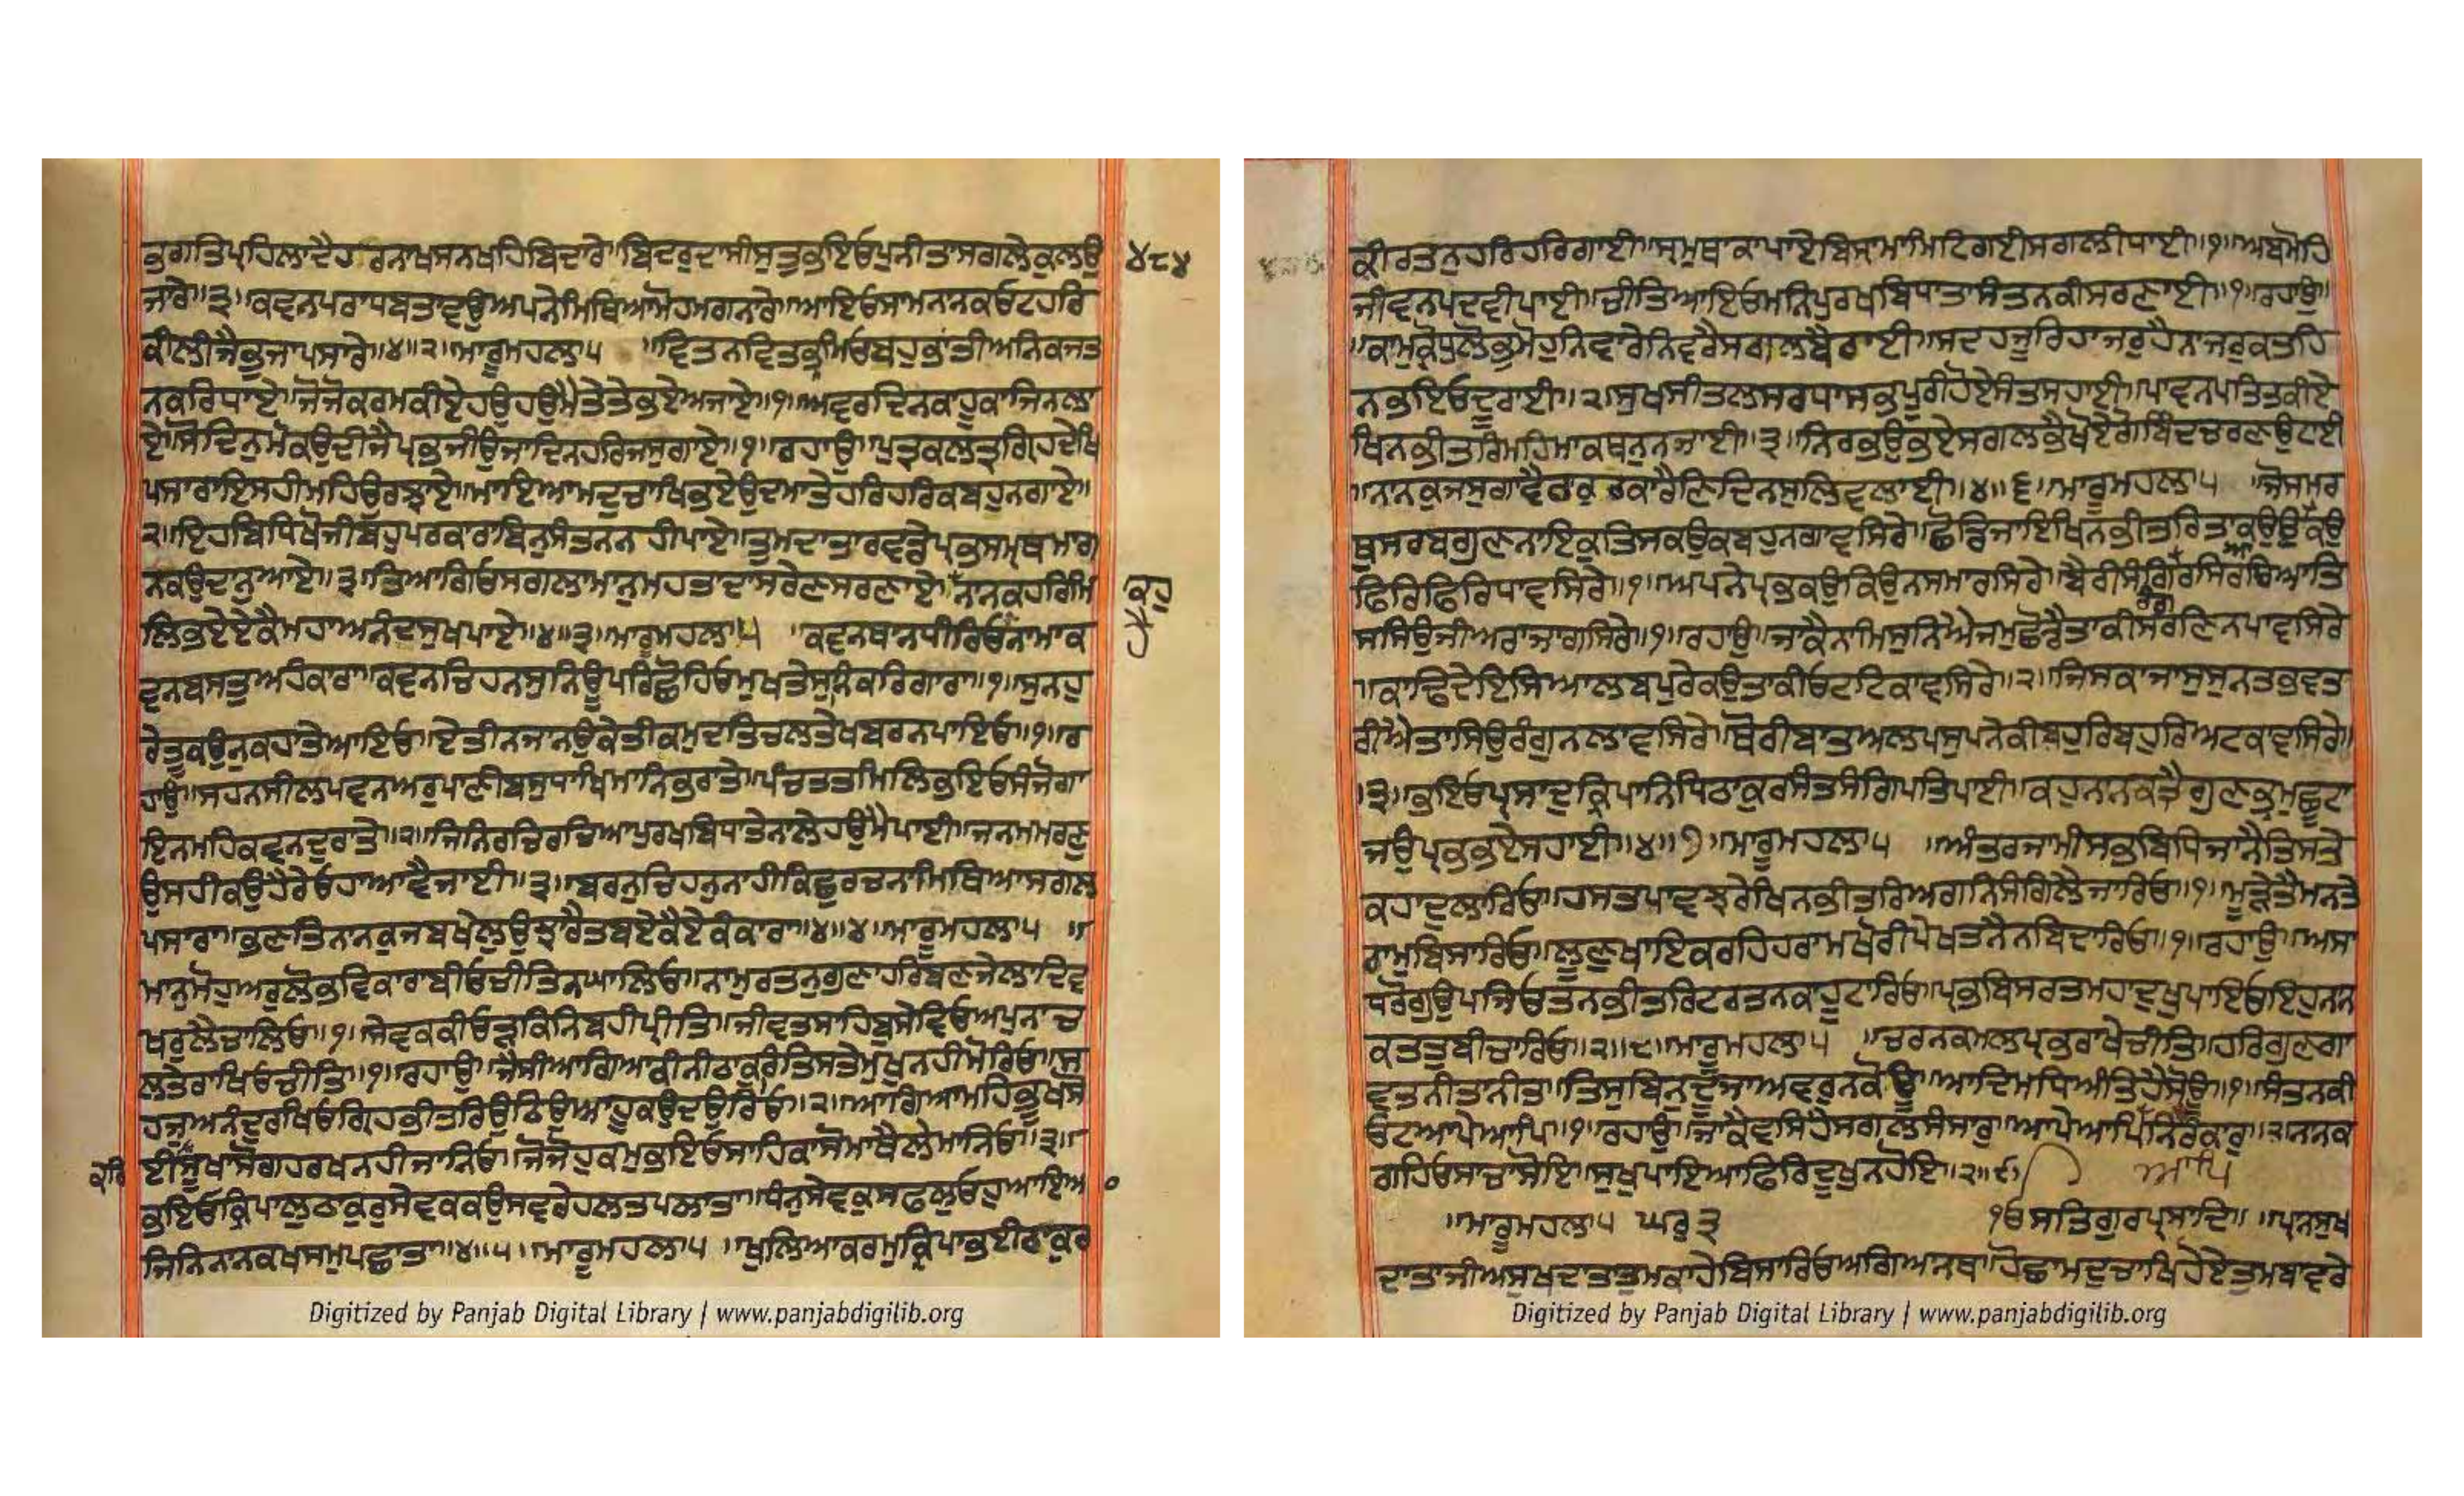 ਭਗਤਿਪ੍ਰਹਿਲਾਦੈਹਰਨਾਖਸਨਖਹਿਬਿਦਾਰੇ॥ਬਿਦਰੁਦਾਸੀਸੁਤੁਭਇਓਪੁਨੀਤਾਸਗਲੇਕੁਲਉ ੪੮੪
ਜਾਰੇ॥੩॥ਕਵਨਪਰਾਧਬਤਾਵਉਅਪਨੇਮਿਥਿਆਮੋਹਮਗਨਾਰੇ॥ਆਇਓਸਾਮਨਾਨਕਓਟਹਰਿ
ਕੀਲੀਜੈਭੁਜਾਪਸਾਰੇ॥੪॥੨॥ਮਾਰੂਮਹਲਾ੫ ॥ਵਿਤਨਵਿਤਭ੍ਰਮਿਓਬਹੁਭਾਤੀਅਨਿਕਜਤ
ਨਕਰਿਧਾਏ॥ਜੋਜੋਕਰਮਕੀਏਹਉਹਉਮੈਤੇਤੇਭਏਅਜਾਏ॥੧॥ਅਵਰਦਿਨਕਾਹੂਕਾਜਿਨਲਾ
ਏ॥ਸੋਦਿਨੁਮੋਕਉਦੀਜੈਪ੍ਰਭਜੀਉਜਾਦਿਨਹਰਿਜਸੁਗਾਏ॥੧॥ਰਹਾਉ॥ਪੁਤ੍ਰਕਲਤ੍ਰਗ੍ਰਿਹਦੇਖਿ
ਪਸਾਰਾਇਸਹੀਮਹਿਉਰਝਾਏ॥ਮਾਇਆਮਦੁਚਾਖਿਭਏਉਦਮਾਤੇਹਰਿਹਰਿਕਬਹੁਨਗਾਏ॥
੨॥ਇਹਬਿਧਿਖੋਜੀਬਹੁਪਰਕਾਰਾਬਿਨੁਸੰਤਨਨਹੀਪਾਏ॥ਤੁਮਦਾਤਾਰਵਡੇਪ੍ਰਭਸਮ੍ਰਥਮਾਗ
ਨਕਉਦਾਨੁਆਏ॥੩॥ਤਿਆਗਿਓਸਗਲਾਮਾਨੁਮਹਤਾਦਾਸਰੇਣਸਰਣਾਏ॥ਨਾਨਕਹਰਿਮਿ ਕਹੁ
ਲਿਭਏਏਕੈਮਹਾਅਨੰਦਸੁਖਪਾਏ॥੪॥੩॥ਮਾਰੂਮਹਲਾ੫ ॥ਕਵਨਥਾਨਧੀਰਿਓਨਾਮਾਕ
ਵਨਬਸਤੁਅਹੰਕਾਰਾ॥ਕਵਨਚਿਹਨਸੁਨਿਊਪਰਿਛੋਹਿਓਮੁਖਤੇਸੁਨਿਕਰਿਗਾਰਾ॥੧॥ਸੁਨਹੁ
ਰੇਤੂਕਉਨੁਕਹਾਤੇਆਇਓ॥ਏਤੀਨਜਾਨਉਕੇਤੀਕਮੁਦਤਿਚਲਤੇਖਬਰਨਪਾਇਓ॥੧॥ਰ
ਹਾਉ॥ਸਹਨਸੀਲਪਵਨਅਰੁਪਾਣੀਬਸੁਧਾਖਿਮਾਨਿਭਰਾਤੇ॥ਪੰਚਤਤਮਿਲਿਭਇਓਸੰਜੋਗਾ
ਇਨਮਹਿਕਵਨਦੁਰਾਤੇ॥੨॥ਜਿਨਿਰਚਿਰਚਿਆਪੁਰਖਬਿਧਾਤੇਨਾਲੇਹਉਮੈਪਾਈ॥ਜਨਮਮਰਣੁ
ਉਸਹੀਕਉਹੈਰੇਓਹਾਆਵੈਜਾਈ॥੩॥ਬਰਨੁਚਿਹਨੁਨਾਹੀਕਿਛੁਰਚਨਾਮਿਥਿਆਸਗਲ
ਪਸਾਰਾ॥ਭਣਤਿਨਾਨਕੁਜਬਖੇਲੁਉਝਾਰੈਤਬਏਕੈਏਕੰਕਾਰਾ॥੪॥੪॥ਮਾਰੂਮਹਲਾ੫ ॥
ਮਾਨੁਮੋਹੁਅਰੁਲੋਭਵਿਕਾਰਾਬੀਓਚੀਤਿਨਘਾਲਿਓ॥ਨਾਮੁਰਤਨੁਗੁਣਾਹਰਿਬਣਜੇਲਾਦਿਵ
ਖਰੁਲੈਚਾਲਿਓ॥੧॥ਸੇਵਕਕੀਓੜਕਿਨਿਬਹੀਪ੍ਰੀਤਿ॥ਜੀਵਤਸਾਹਿਬੁਸੇਵਿਓਅਪੁਨਾਚ
ਲਤੇਰਾਖਿਓਚੀਤਿ॥੧॥ਰਹਾਉ॥ਜੈਸੀਆਗਿਆਕੀਨੀਠਾਕੁਰਿਤਿਸਤੇਮੁਖੁਨਹੀਮੋਰਿਓ॥ਸ
ਹਜੁਅਨੰਦੁਰਖਿਓਗ੍ਰਿਹਭੀਤਰਿਉਠਿਉਆਹੂਕਉਦਉਰਿਓ॥੨॥ਆਗਿਆਮਹਿਭੂਖਸੋ
ਹਰਿ ਈਸੂਖਾਸੋਗਹਰਖਨਹੀਜਾਨਿਓ॥ਜੋਜੋਹੁਕਮੁਭਇਓਸਾਹਿਕਾਸੋਮਾਥੈਲੇਮਾਨਿਓ॥੩॥
ਭਇਓਕ੍ਰਿਪਾਲੁਠਾਕੁਰੁਸੇਵਕਕਉਸਵਰੇਹਲਤਪਲਾਤਾ॥ਧੰਨੁਸੇਵਕੁਸਫਲੁਓਹੁਆਇਆ
ਜਿਨਿਨਾਨਕਖਸਮੁਪਛਾਤਾ॥੪॥੫॥ਮਾਰੂਮਹਲਾ੫ ॥ਖੁਲਿਆਕਰਮੁਕ੍ਰਿਪਾਭਈਠਾਕੁਰ
Digitized by Panjab Digital Library | www.panjabdigilib.org
ਕੀਰਤਨੁਹਰਿਹਰਿਗਾਈ॥ਸ੍ਰਮੁਥਾਕਾਪਾਏਬਿਸ੍ਰਾਮਾਮਿਟਿਗਈਸਗਲੀਧਾਈ॥੧॥ਅਬਮੋਹਿ
ਜੀਵਨਪਦਵੀਪਾਈ॥ਚੀਤਿਆਇਓਮਨਿਪੁਰਖਬਿਧਾਤਾਸੰਤਨਕੀਸਰਣਾਈ॥੧॥ਰਹਾਉ॥
॥ਕਾਮੁਕ੍ਰੋਧੁਲੋਭੁਮੋਹੁਨਿਵਾਰੇਨਿਵਰੈਸਗਲਬੈਰਾਈ॥ਸਦਹਜੂਰਿਹਾਜਰੁਹੈਨਾਜਰੁਕਤਹਿ
ਨਭਇਓਦੂਰਾਈ॥੨॥ਸੁਖਸੀਤਲਸਰਧਾਸਭਪੂਰੀਹੋਏਸੰਤਸਹਾਈ॥ਪਾਵਨਪਤਿਤਕੀਏ
ਖਿਨਭੀਤਰਿਮਹਿਮਾਕਥਨੁਨਜਾਈ॥੩॥ਨਿਰਭਉਭਏਸਗਲਭੈਖੋਏਗੋਬਿੰਦਚਰਣਓਟਾਈ
॥ਨਾਨਕੁਜਸੁਗਾਵੈਠਾਕੁਰਕਾਰੈਣਿਦਿਨਸੁਲਿਵਲਾਈ॥੪॥੬॥ਮਾਰੂਮਹਲਾ੫ ॥ਜੋਸਮਰ
ਥੁਸਰਬਗੁਣਨਾਇਕੁਤਿਸਕਉਕਬਹੁਨਗਾਵਸਿਰੇ॥ਛੋਡਿਜਾਇਖਿਨਭੀਤਰਿਤਾਕਉਉਆਕਉ
ਫਿਰਿਫਿਰਿਧਾਵਸਿਰੇ॥੧॥ਅਪਨੇਪ੍ਰਭਕਉਕਿਉਨਸਮਾਰਸਿਰੇ॥ਬੈਰੀਸੰਗਿਰੰਗਰਸਿਰਚਿਆਤਿ
ਸਸਿਉਜੀਅਰਾਜਾਰਸਿਰੇ॥੧॥ਰਹਾਉ॥ਜਾਕੈਨਾਮਿਸੁਨਿਐਜਮੁਛੋਡੈਤਾਕੀਸਰਣਿਨਪਾਵਸਿਰੇ
॥ਕਾਢਿਦੇਇਸਿਆਲਬਪੁਰੇਕਉਤਾਕੀਓਟਟਿਕਾਵਸਿਰੇ॥੨॥ਜਿਸਕਾਜਾਸੁਸੁਨਤਭਵਤ
ਰੀਐਤਾਸਿਉਰੰਗੁਨਲਾਵਸਿਰੇ॥ਥੋਰੀਬਾਤਅਲਪਸੁਪਨੇਕੀਬਹੁਰਿਬਹੁਰਿਅਟਕਾਵਸਿਰੇ॥
।੩॥ਭਇਓਪ੍ਰਸਾਦੁਕ੍ਰਿਪਾਨਿਧਿਠਾਕੁਰਸੰਤਸੰਗਿਪਤਿਪਾਈ॥ਕਹੁਨਾਨਕਤ੍ਰੈਗੁਣਭ੍ਰਮੁਛੂਟਾ
ਜਉਪ੍ਰਭਭਏਸਹਾਈ॥੪॥੭॥ਮਾਰੂਮਹਲਾ੫ ॥ਅੰਤਰਜਾਮੀਸਭਬਿਧਿਜਾਨੈਤਿਸਤੇ
ਕਹਾਦੁਲਾਰਿਓ॥ਹਸਤਪਾਵਝਰੇਖਿਨਭੀਤਰਿਅਗਨਿਸੰਗਿਲੈਜਾਰਿਓ॥੧॥ਮੂੜੇਤੈਮਨਤੇ
ਰਾਮੁਬਿਸਾਰਿਓ॥ਲੂਣੁਖਾਇਕਰਹਿਹਰਾਮਖੋਰੀਪੇਖਤਨੈਨਬਿਦਾਰਿਓ॥੧॥ਰਹਾਉ॥ਅਸਾ
ਧਰੋਗੁਉਪਜਿਓਤਨਭੀਤਰਿਟਰਤਨਕਾਹੂਟਾਰਿਓ॥ਪ੍ਰਭਬਿਸਰਤਮਹਾਦੁਖੁਪਾਇਓਇਹੁਨਾਨ
ਕਤਤੁਬੀਚਾਰਿਓ॥੨॥੮॥ਮਾਰੂਮਹਲਾ੫ ॥ਚਰਨਕਮਲਪ੍ਰਭਰਾਖੇਚੀਤਿ॥ਹਰਿਗੁਣਗਾ
ਵਤਨੀਤਾਨੀਤ॥ਤਿਸੁਬਿਨੁਦੂਜਾਅਵਰੁਨਕੋਊ॥ਆਦਿਮਧਿਅੰਤਿਹੈਸੋਊ॥੧॥ਸੰਤਨਕੀ
ਓਟਆਪੇਆਪਿ॥੧॥ਰਹਾਉ॥ਜਾਕੈਵਸਿਹੈਸਗਲਸੰਸਾਰੁ॥ਆਪੇਆਪਿਨਿਰੰਕਾਰੁ॥੨॥ਨਾਨਕ
ਗਹਿਓਸਾਚਾਸੋਇ॥ਸੁਖੁਪਾਇਆਫਿਰਿਦੂਖੁਨਹੋਇ॥੨॥੯॥ ਆਪਿ
॥ਮਾਰੂਮਹਲਾ੫ ਘਰੁ੩ ੧ਓਸਤਿਗੁਰਪ੍ਰਸਾਦਿ॥ ॥ਪ੍ਰਾਨਸੁਖ
ਦਾਤਾਜੀਅਸੁਖਦਾਤਾਤੁਮਕਾਹੇਬਿਸਾਰਿਓਅਗਿਆਨਥ॥ਹੋਛਾਮਦੁਚਾਖਿਹੋਏਤੁਮਬਾਵਰੇ
Digitized by Panjab Digital Library | www.panjabdigilib.org